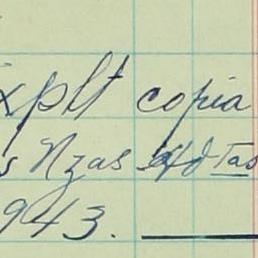 xplt copia
s Nzas Ad-tas
943.